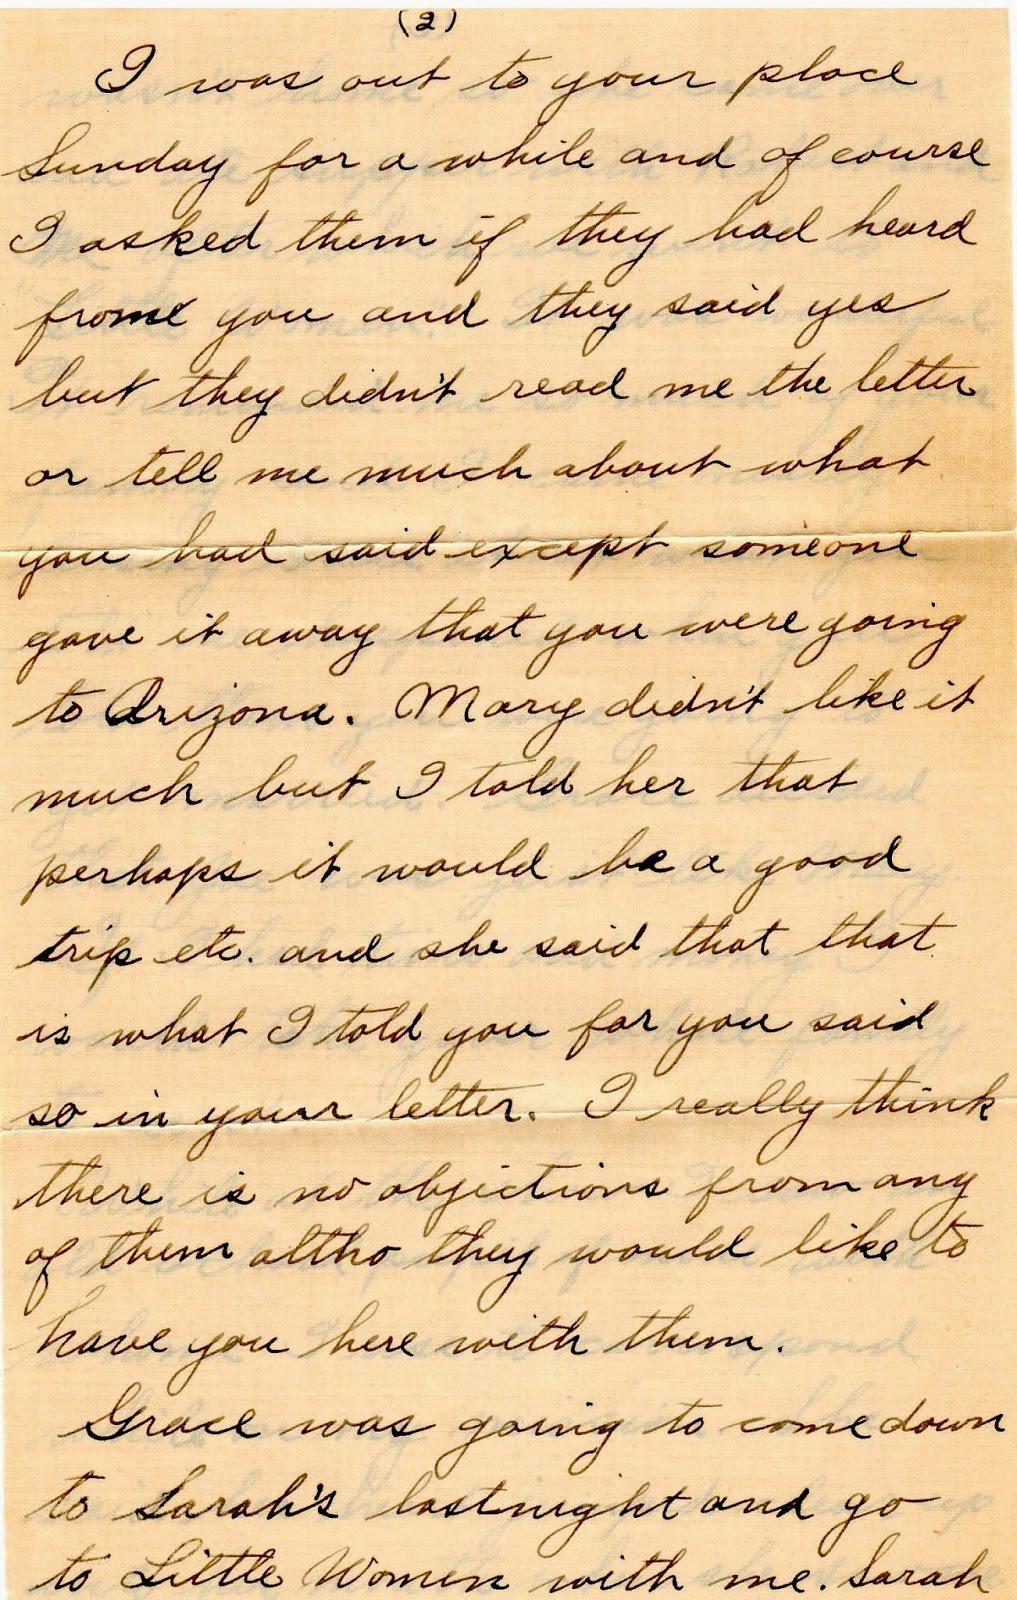 (2)
I was out to your place
Sunday for a while and of course
I asked them if they had heard
frome you and they said yes
but they didn't read me the letter
or tell me much about what
you had said except someone
gave it away that you were going
to Arizona. Mary didn't like it
much but I told her that
perhaps it would be a good
trip etc. and she said that that
is what I told you for you said
so in your letter. I really think
there is no objections from any
of them altho they would like to
have you here with them.
Grace was going to come down
to Sarah's last night and go
to Little Women with me. Sarah